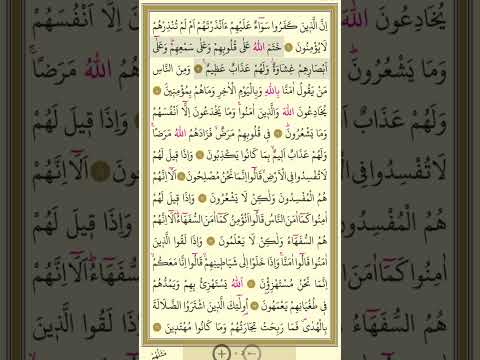 اِنَّ الَّذٖينَ كَفَرُوا سَوَٓاءٌ عَلَيْهِمْ ءَاَنْذَرْتَهُمْ اَمْ لَمْ تُنْذِرْهُمْ
لَا يُؤْمِنُونَ خَتَمَ اللّٰهُ عَلٰى قُلُوبِهِمْ وَعَلٰى سَمْعِهِمْ وَعَلٰٓى
اَبْصَارِهِمْ غِشَاوَةٌ وَلَهُمْ عَذَابٌ عَظٖيمٌ وَمِنَ النَّاسِ
مَنْ يَقُولُ اٰمَنَّا بِاللّٰهِ وَبِالْيَوْمِ الْاٰخِرِ وَمَا هُمْ بِمُؤْمِنٖينَ
يُخَادِعُونَ اللّٰهَ وَالَّذٖينَ اٰمَنُوا وَمَا يَخْدَعُونَ اِلَّٓا اَنْفُسَهُمْ
وَمَا يَشْعُرُونَ فٖى قُلُوبِهِمْ مَرَضٌ فَزَادَهُمُ اللّٰهُ مَرَضًا
وَلَهُمْ عَذَابٌ اَلٖيمٌ بِمَا كَانُوا يَكْذِبُونَ وَاِذَا قٖيلَ لَهُمْ
لَا تُفْسِدُوا فِى الْاَرْضِ قَالُٓوا اِنَّمَا نَحْنُ مُصْلِحُونَ اَلَٓا اِنَّهُمْ
هُمُ الْمُفْسِدُونَ وَلٰكِنْ لَا يَشْعُرُونَ وَاِذَا قٖيلَ لَهُمْ
اٰمِنُوا كَمَٓا اٰمَنَ النَّاسُ قَالُٓوا اَنُؤْمِنُ كَمَٓا اٰمَنَ السُّفَهَٓاءُ اَلَٓا اِنَّهُمْ
هُمُ السُّفَهَٓاءُ وَلٰكِنْ لَا يَعْلَمُونَ وَاِذَا لَقُوا الَّذٖينَ
اٰمَنُوا قَالُٓوا اٰمَنَّا وَاِذَا خَلَوْا اِلٰى شَيَاطٖينِهِمْ قَالُٓوا اِنَّا مَعَكُمْ
اِنَّمَا نَحْنُ مُسْتَهْزِؤُنَ اَللّٰهُ يَسْتَهْزِئُ بِهِمْ وَيَمُدُّهُمْ
فٖى طُغْيَانِهِمْ يَعْمَهُونَ اُو۬لٰٓئِكَ الَّذٖينَ اشْتَرَوُا الضَّلَالَةَ
بِالْهُدٰى فَمَا رَبِحَتْ تِجَارَتُهُمْ وَمَا كَانُوا مُهْتَدٖينَ